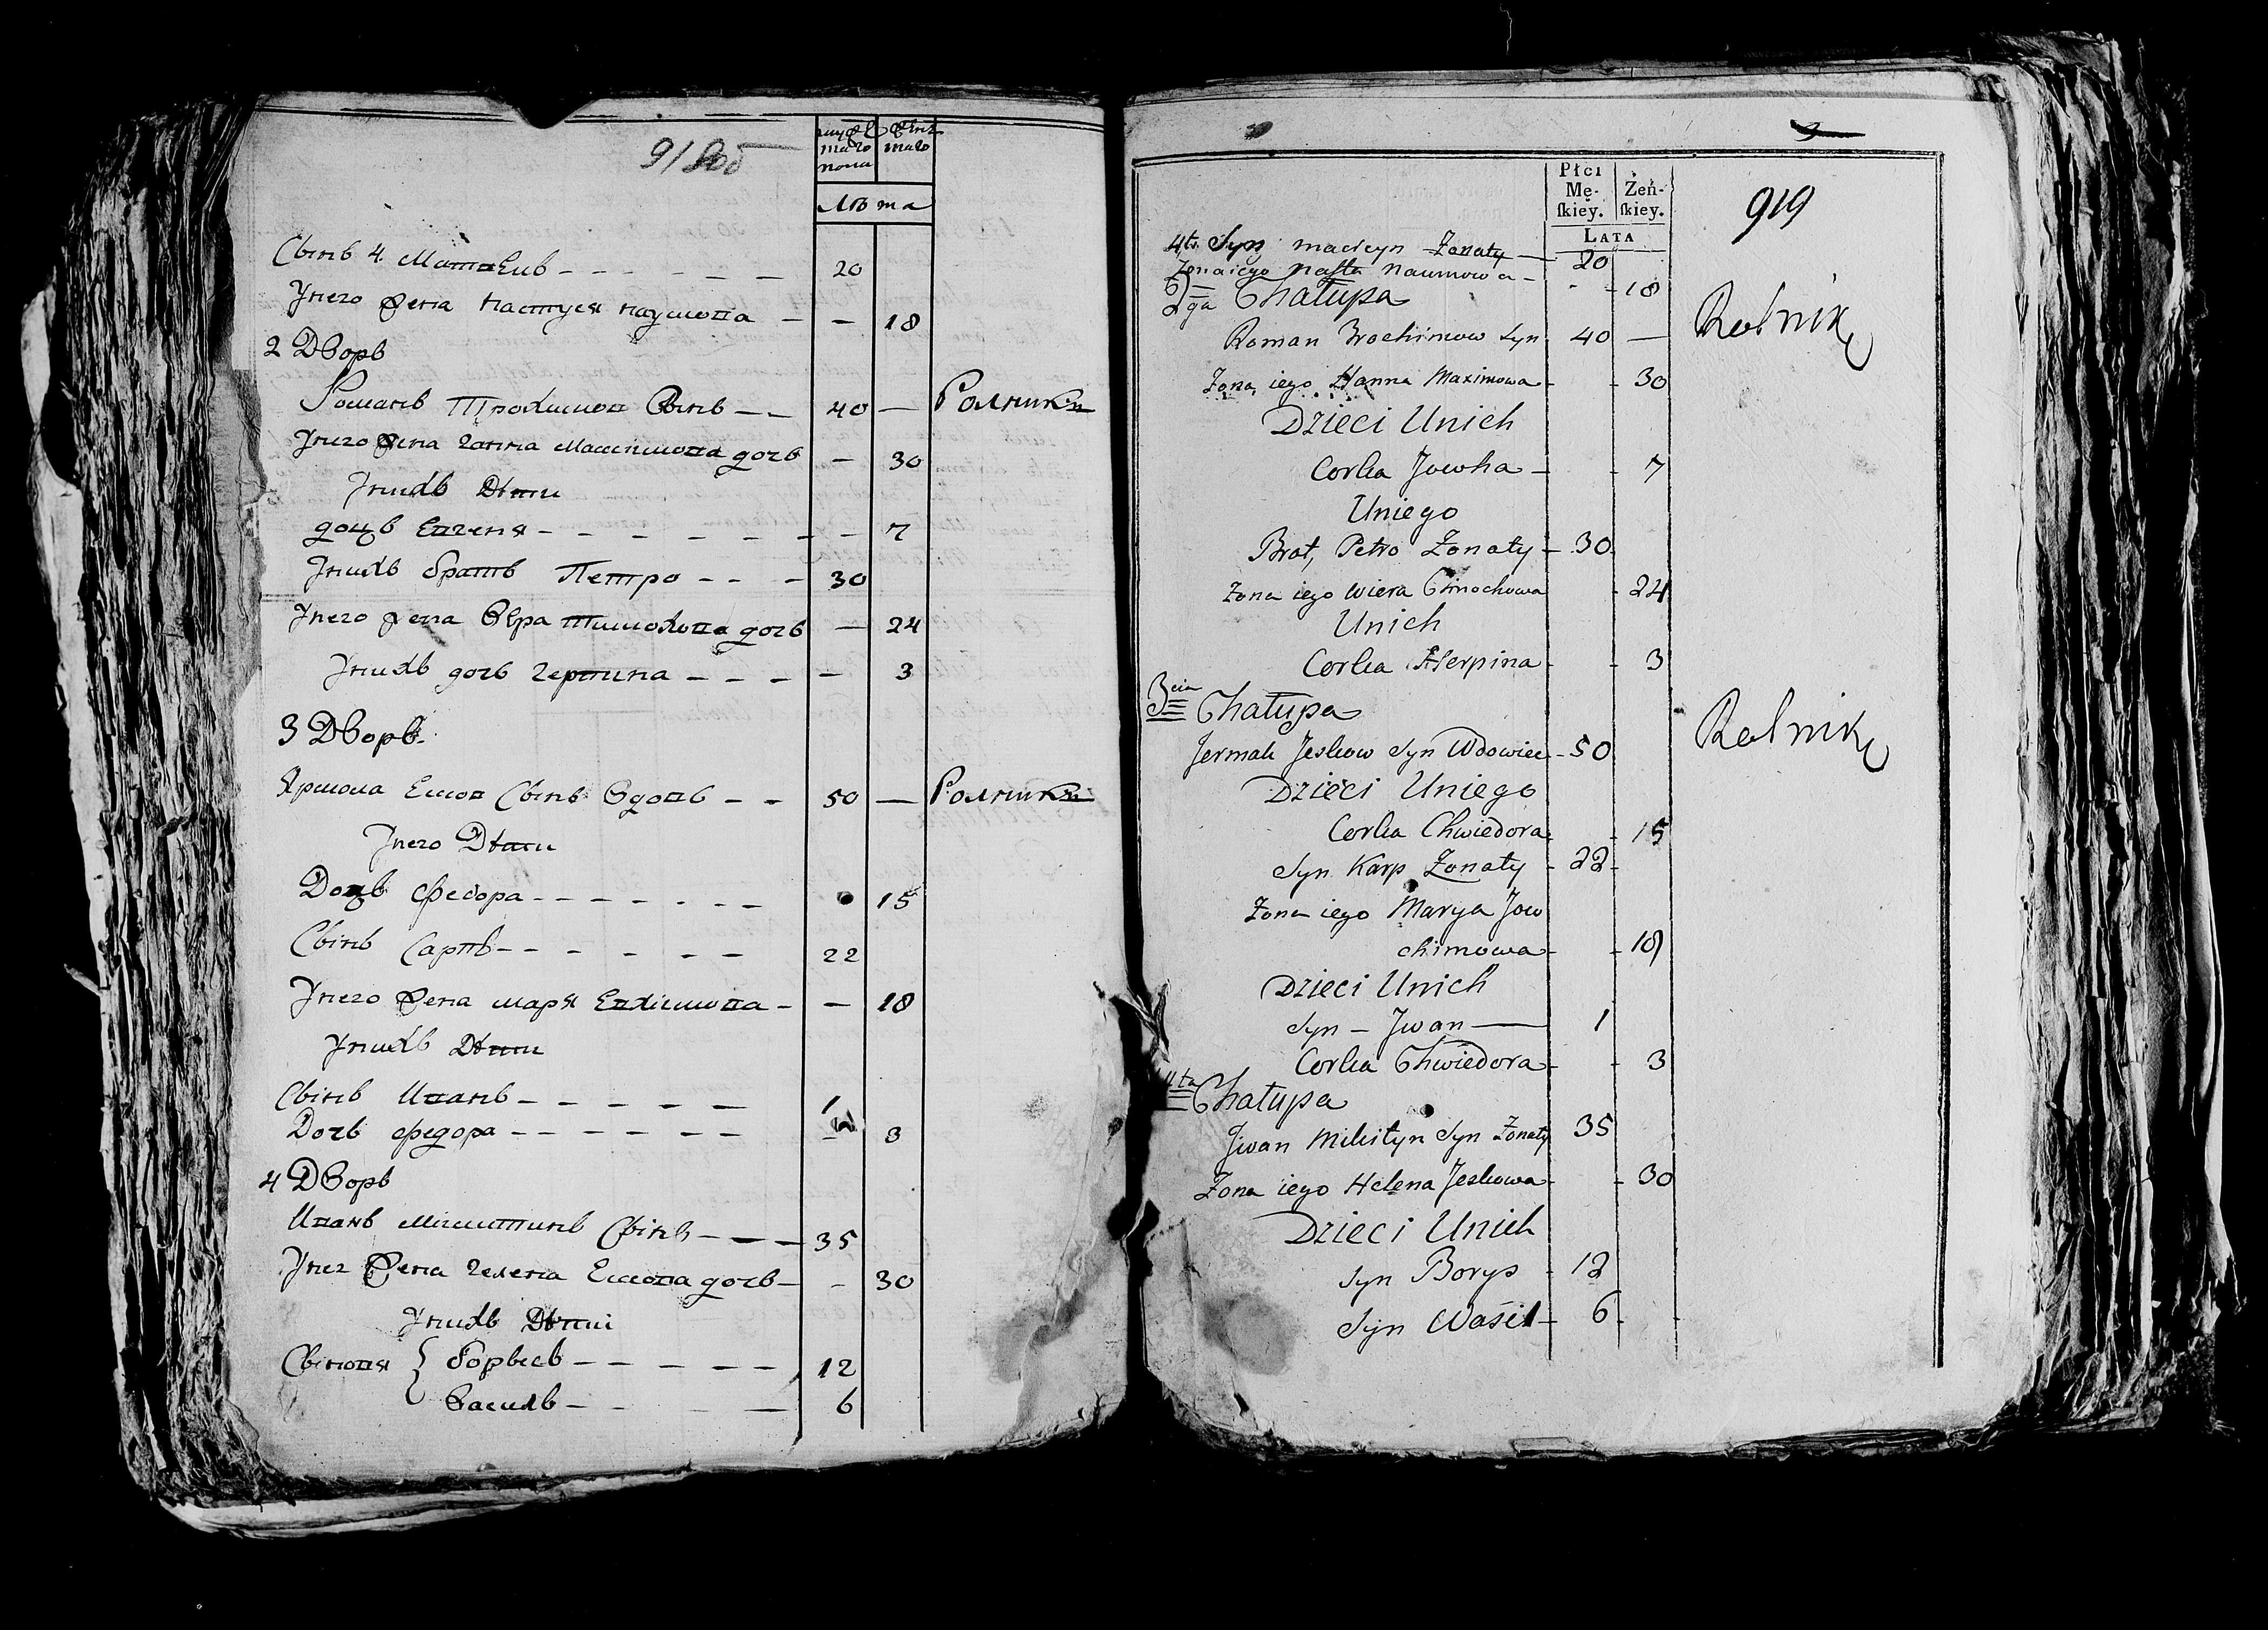 мужеска
пола
женска
Лѣта
Сынъ 4. Матвей 20
У него жена Настуся Наумова 18
2 Дворъ
Романъ Трохимов Сынъ 40 — Ролники
У него жена Ганна Максимова дочъ — 30
У нихъ Дѣти
дочъ Евгеня — 7
У нихъ братъ Петро 30
У него жена Вера Тимохова дочъ — 24
У нихъ дочъ Герпина — 3
3 Дворъ
Ярмола Есков Сынъ Вдовъ 50 — Ролники
У него Дѣти
Дочъ Федора 15
Сынъ Карпъ 22
У него жена Маря Евхимова — 18
У нихъ Дѣти
Сынъ Иванъ 1
Дочъ Федора — 3
4 Дворъ
Иванъ Микитинъ Сынъ 35
У него жена Гелена Ескова дочъ — 30
У нихъ Дѣти
Сыновя { Борысъ 12
Василъ 6
919
Płci Mę-skiey. Żeń-skiey.
LATA
4ty Syn Macieyn Żonaty — 20
Żona iego Nasta Naumowa - 18
2ga Chałupa
Roman Trochimow Syn 40 — Rolnik
Żona iego Hanna Maximowa - 30
Dzieci Unich
Corka Jowha - 7
Uniego
Brat, Petro Żonaty - 30
Żona iego Wiera Timochowa - 24
Unich
Corka Herpina - 3
3cia Chałupa
Jermak Jeskow Syn Wdowiec - 50 Rolnik
Dzieci Uniego
Corka Chwiedora - 15
Syn Karp Żonaty - 22
Żona iego Marya Jow
chimowa - 18
Dzieci Unich
Syn — Jwan — 1
Corka Chwiedora - 3
4ta Chałupa
Jwan Mikityn Syn Żonaty 35
Żona iego Helena Jeskowa - 30
Dzieci Unich
Syn Borys - 12
Syn Wasil - 6